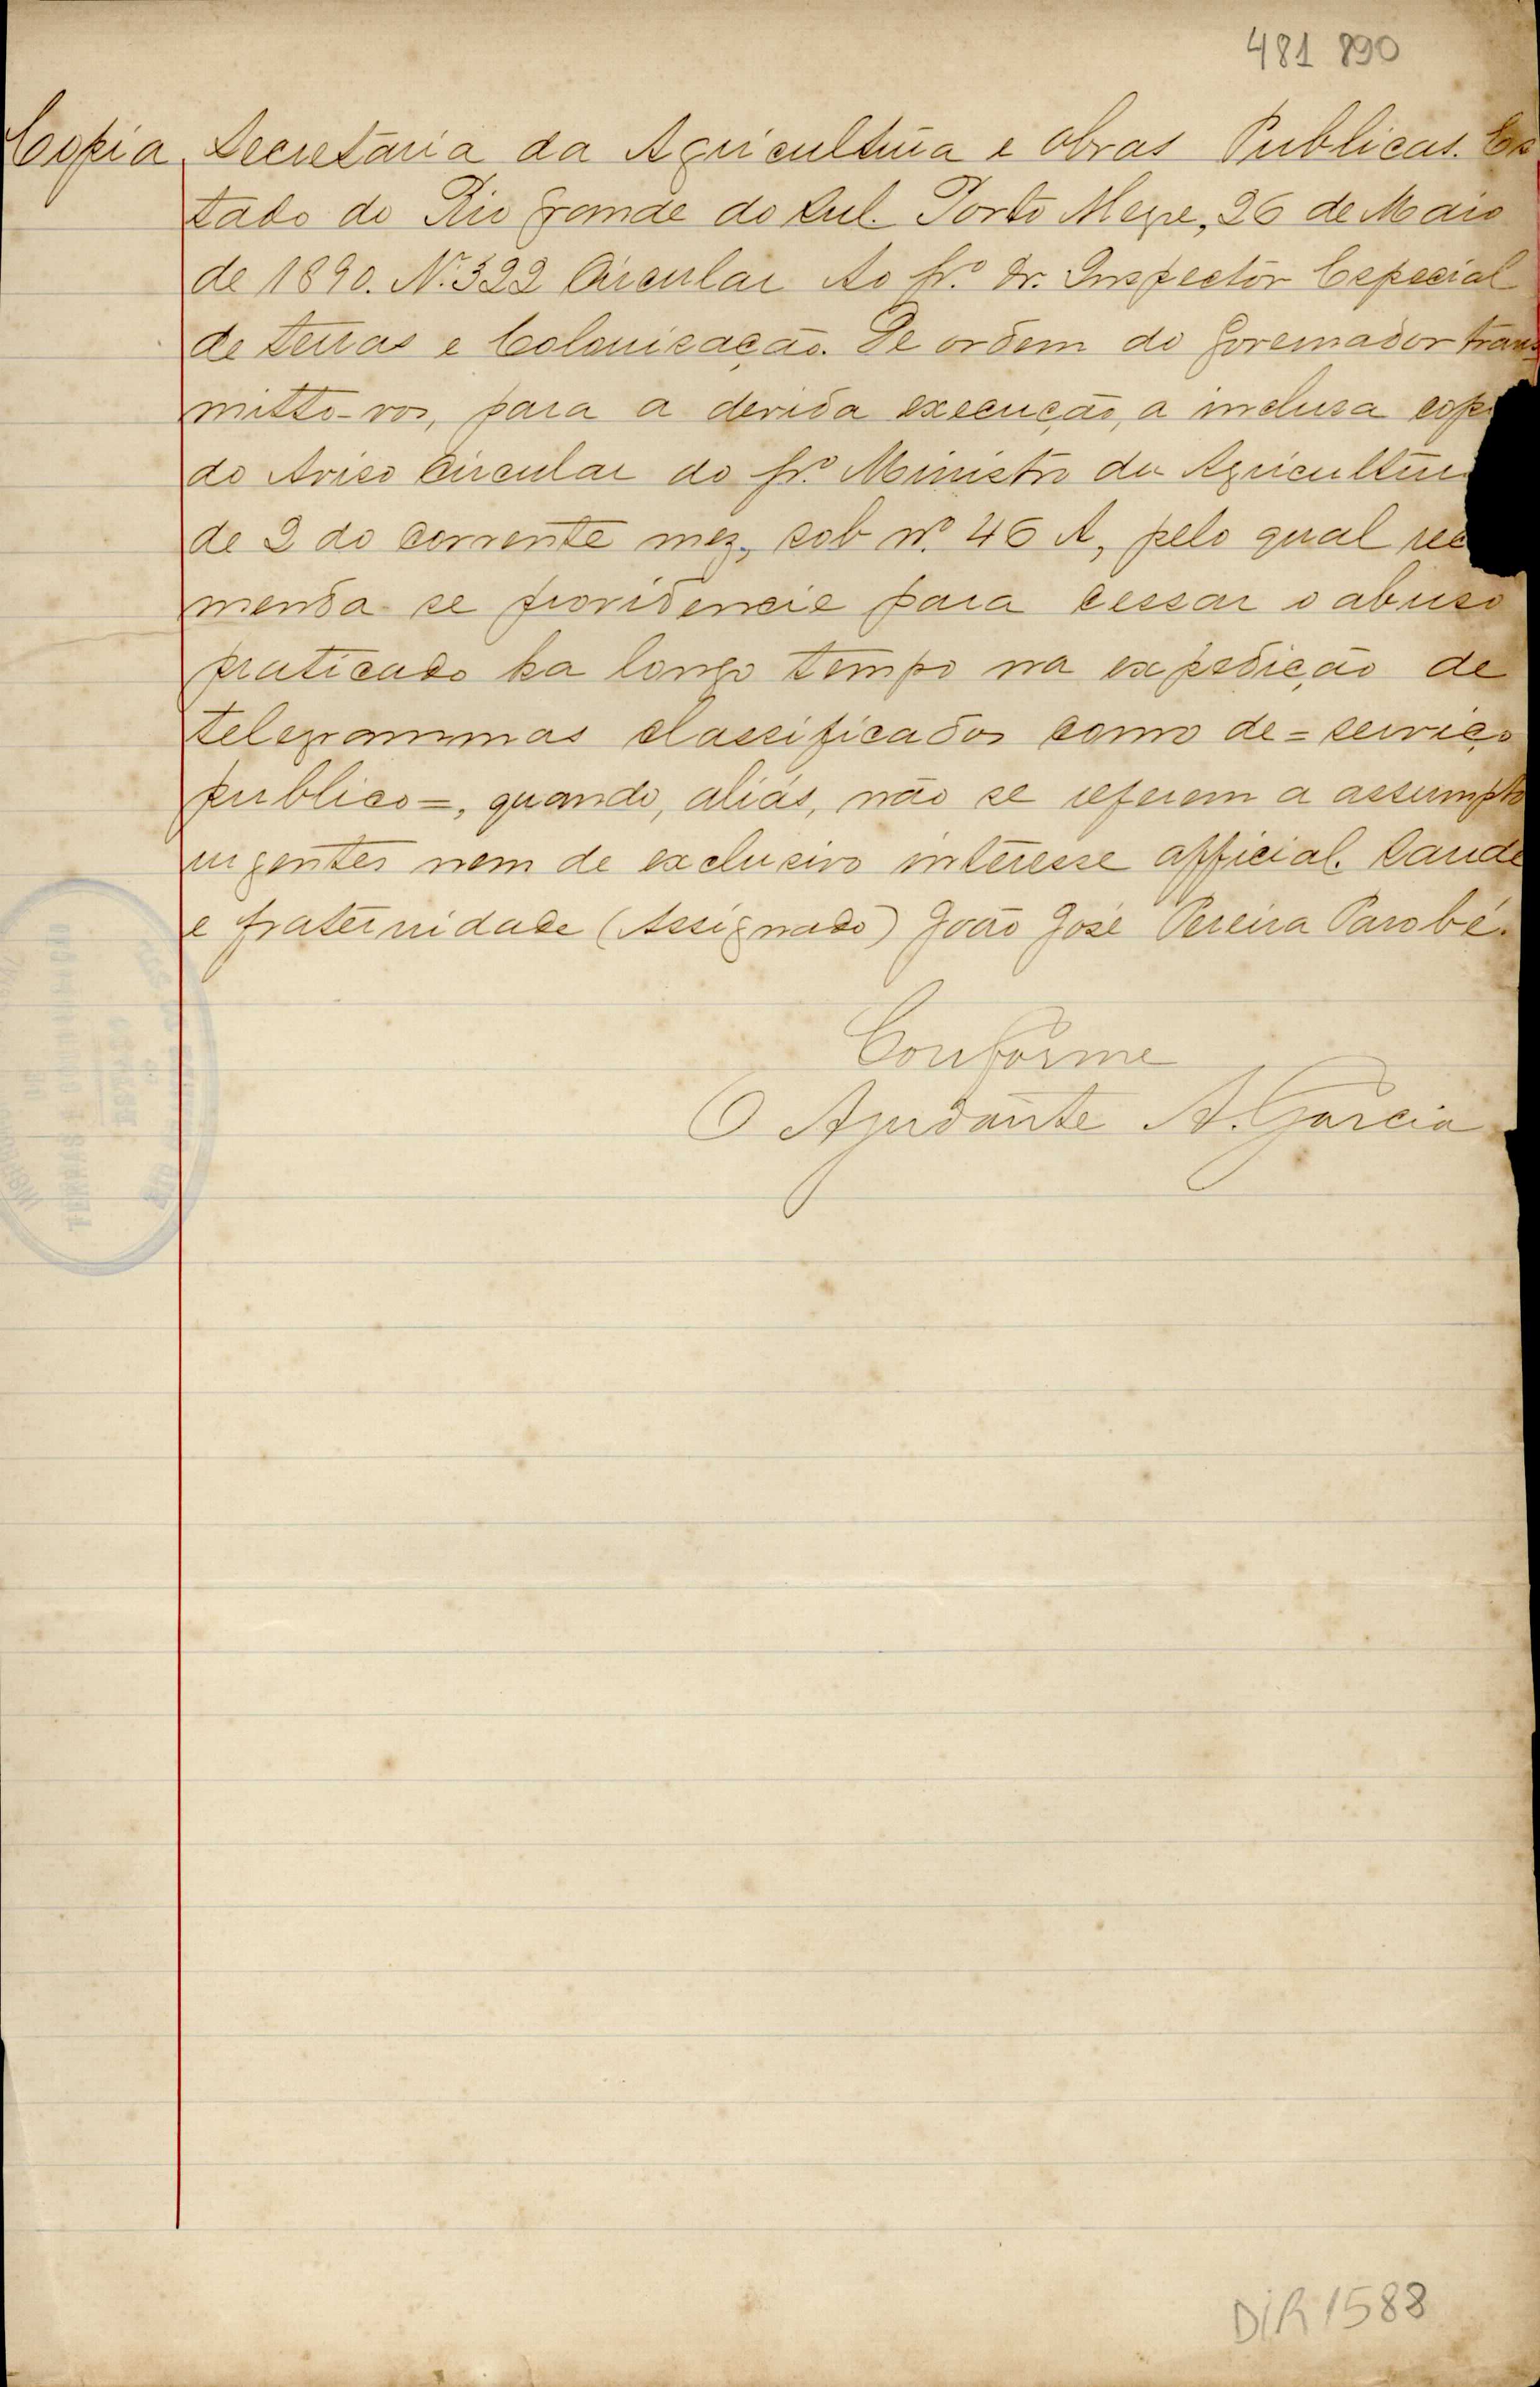 481 890
Copia Secretaria da Agricultura e Obras Publicas. Es
tado do Rio Grande do Sul. Porto Alegre, 26 de Maio
de 1890. N.º 322 Circular Ao Sr.º Dr. Inspector Especial
de terras e Colonisação. De ordem do Governador trans
mitto-vos, para a devida execução, a inclusa copi
do Aviso Circular do Sr.º Ministro da Agricultur
de 2 do corrente mez, sob nº 46 A, pelo qual rec
menda se providencie para cessar o abuso
praticado ha longo tempo na expedição de
telegrammas classificados como de = serviço
publico =, quando, aliás, não se referem a assumpto
urgentes nem de exclusivo interesse official. Saude
e fraternidade (Assignado) João José Pereira Parobé.
Conforme
O Ajudante A. Garcia
DIR 1588